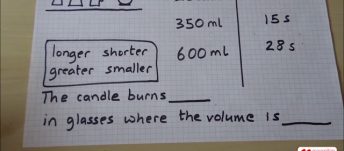 350 ml 15 s
longer shorter 600 ml 28 s
greater smaller
The candle burns____
in glasses where the volume is____